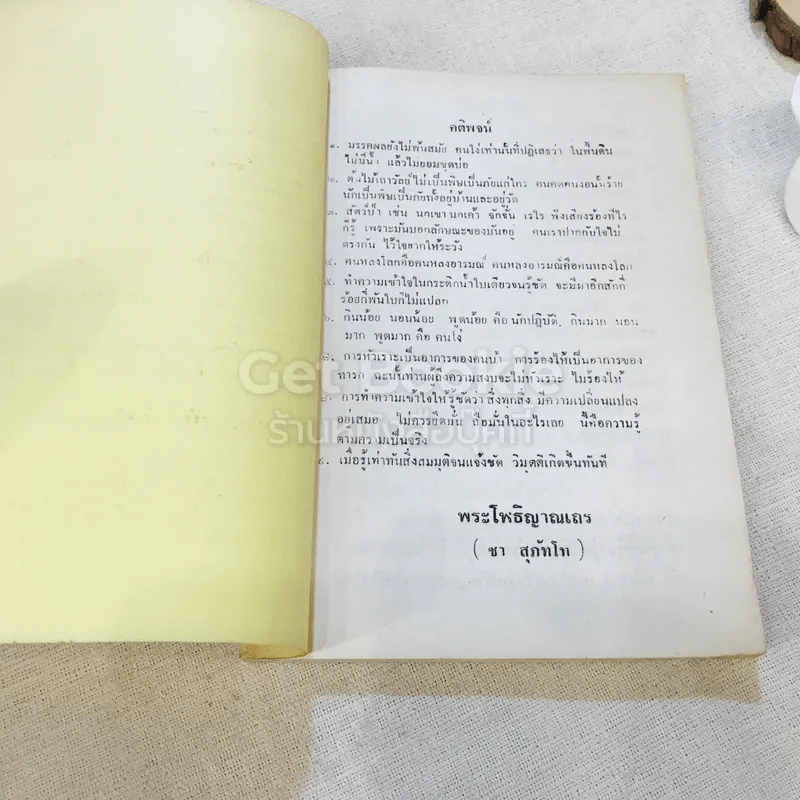 คติพจน์
๑. มรรคผลยังไม่พ้นสมัย คนโง่เท่านั้นที่ปฏิเสธว่า ในพื้นดิน
ไม่มีน้ำ แล้วไม่ยอมขุดบ่อ
๒. ต้นไม้เถาวัลย์ไม่เป็นพิษเป็นภัยแก่ใคร คนคดคนงอนั้นร้าย
นักเป็นพิษเป็นภัยทั้งอยู่บ้านและอยู่วัด
๓. สัตว์ป่า เช่น นกเขา นกเค้า จักจั่น เรไร ฟังเสียงร้องทีไร
ก็รู้ เพราะมันบอกลักษณะของมันอยู่ คนเราปากกับใจไม่
ตรงกัน ไว้ใจยากให้ระวัง
๔. คนหลงโลกคือคนหลงอารมณ์ คนหลงอารมณ์คือคนหลงโลก
๕. ทำความเข้าใจในกระติกน้ำใบเดียวจนรู้ชัด จะมีมาอีกสักกี่
ร้อยกี่พันใบก็ไม่แปลก
๖. กินน้อย นอนน้อย พูดน้อย คือ นักปฏิบัติ, กินมาก นอน
มาก พูดมาก คือ คนโง่
๗. การหัวเราะเป็นอาการของคนบ้า การร้องไห้เป็นอาการของ
ทารก ฉะนั้นท่านผู้ถึงความสงบจะไม่หัวเราะ ไม่ร้องไห้
๘. การทำความเข้าใจให้รู้ชัดว่า สิ่งทุกสิ่ง มีความเปลี่ยนแปลง
อยู่เสมอ ไม่ควรยึดมั่น ถือมั่นในอะไรเลย นี้คือความรู้
ตามความเป็นจริง
๙. เมื่อรู้เท่าทันสิ่งสมมุติจนแจ้งชัด วิมุตติเกิดขึ้นทันที
พระโพธิญาณเถร
( ชา สุภัทโท )
Get Bookie
ร้านหนังสือบุ๊คกี้